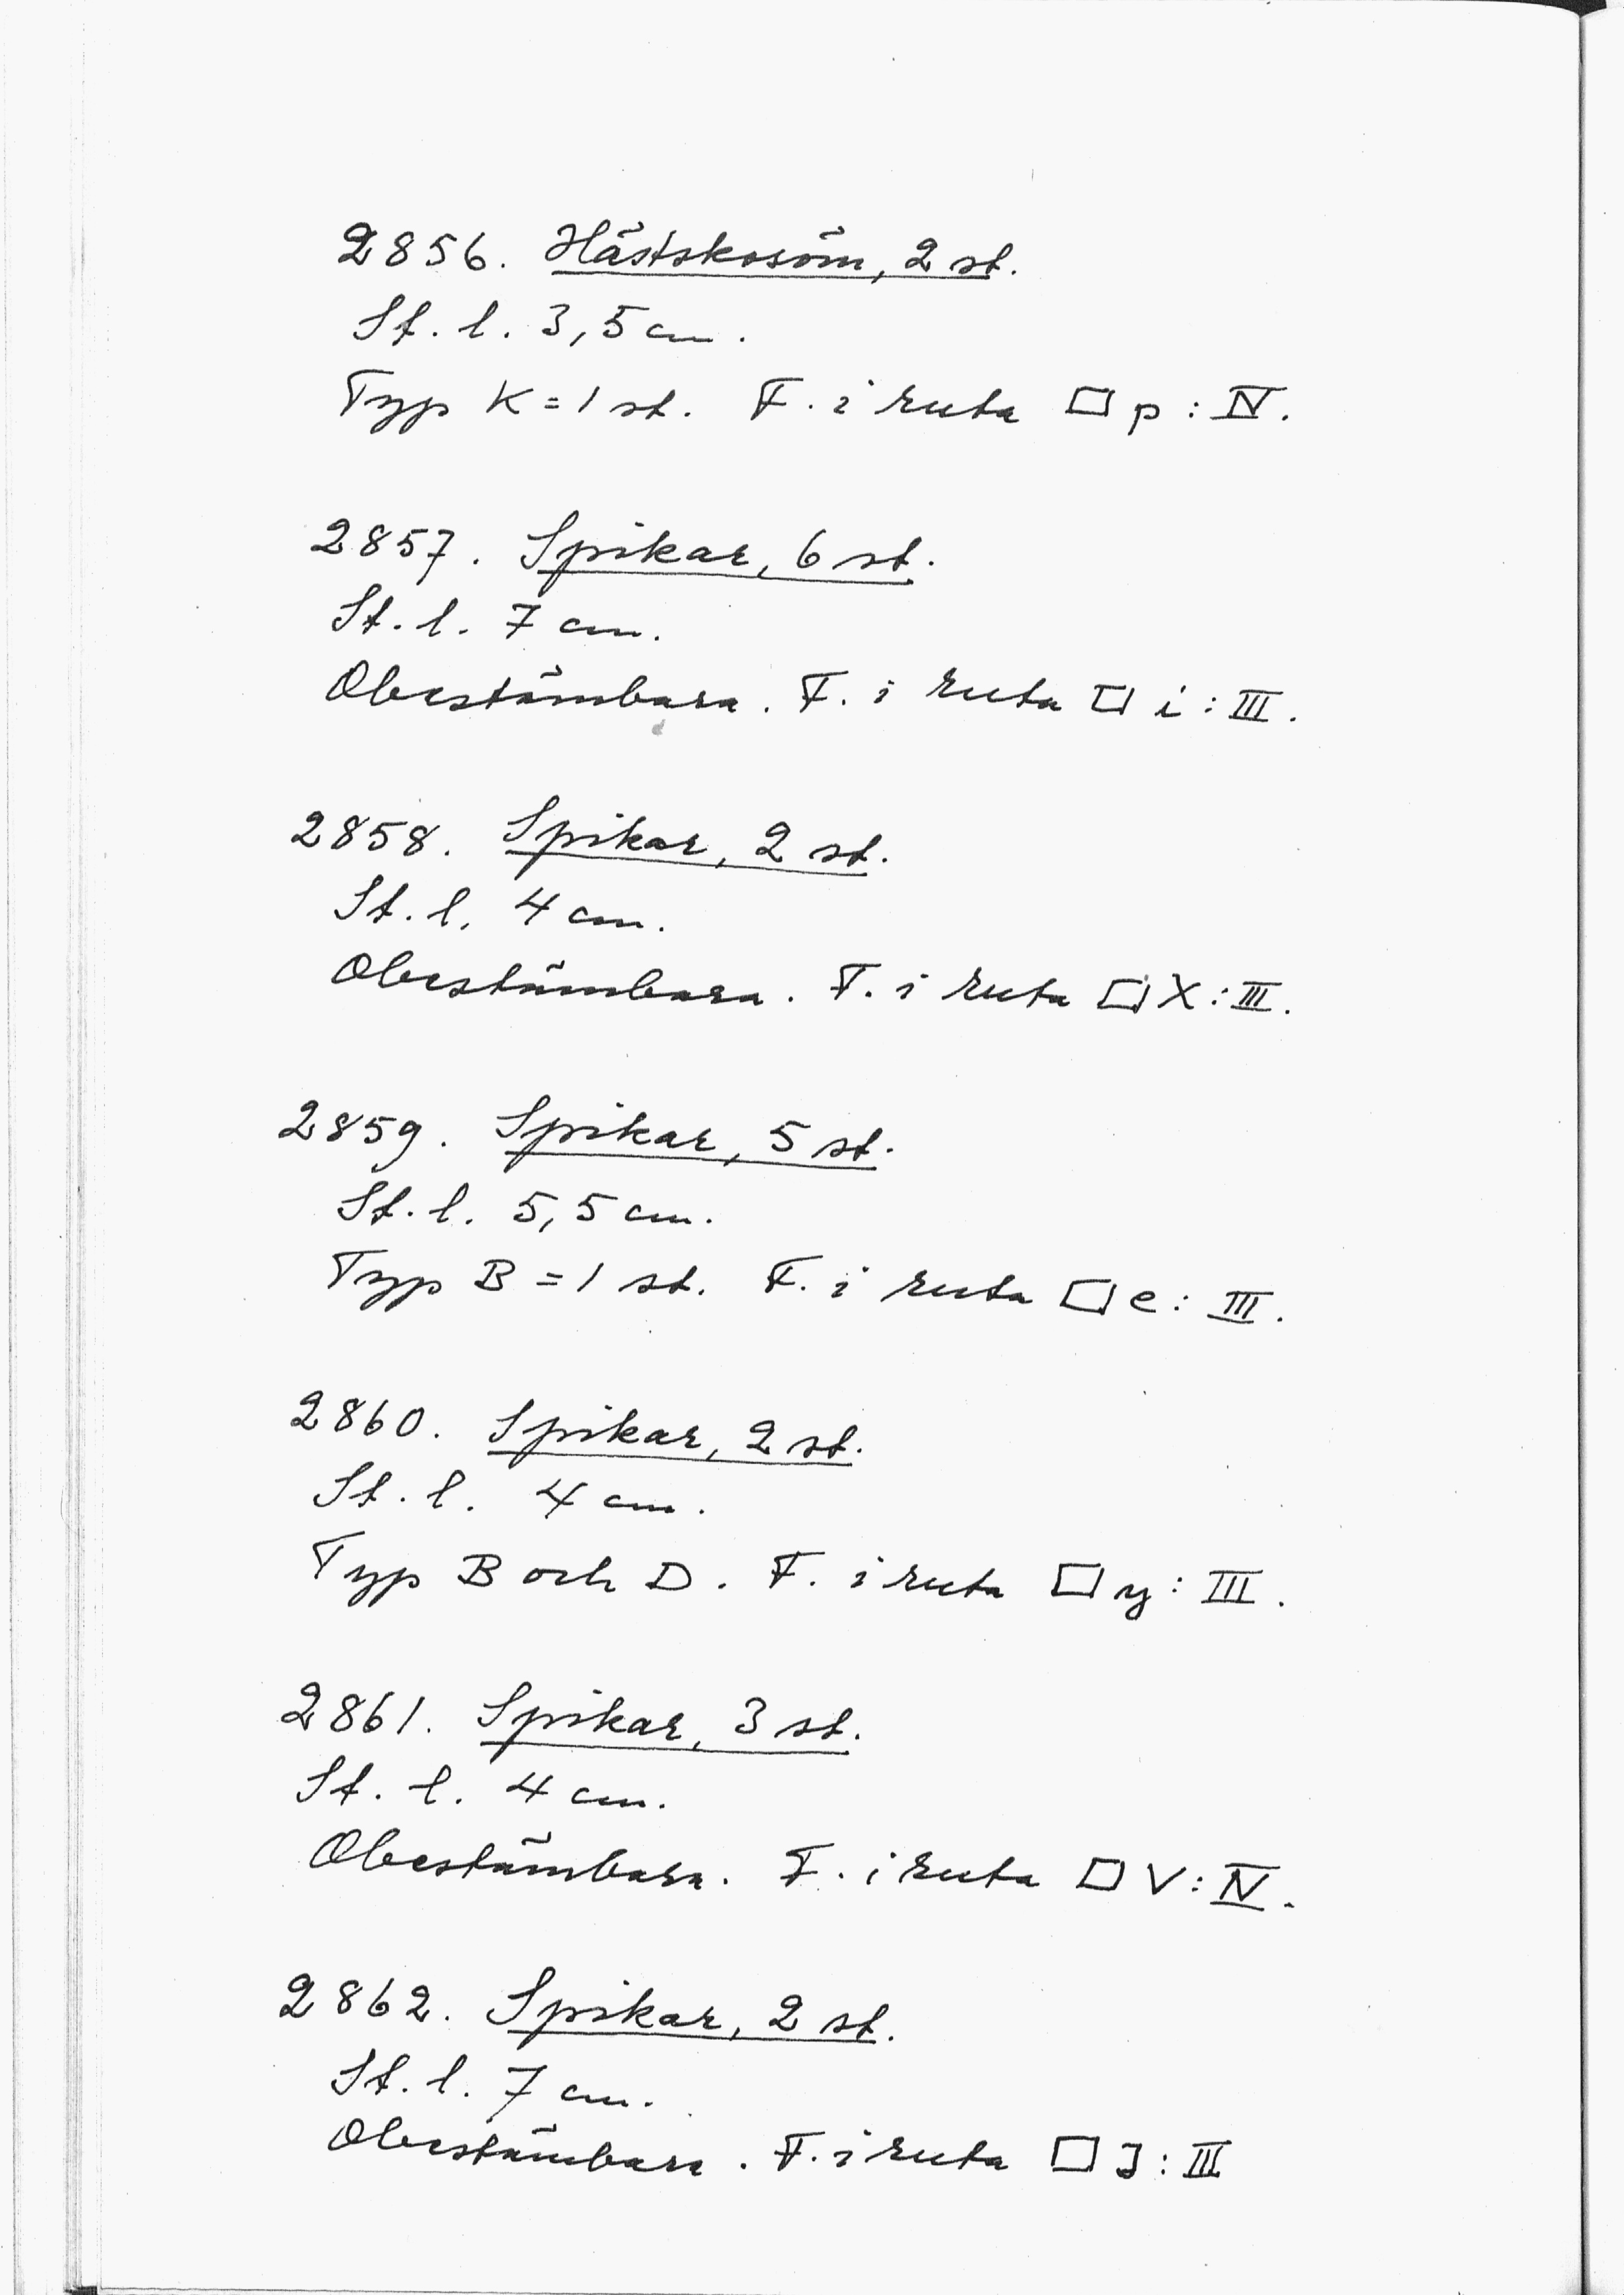 2856. Hästskosöm, 2 st.
St. l. 3,5 cm.
Typ K = 1 st. F. i ruta □ p : IV.
2857. Spikar, 6 st.
St. l. 7 cm.
Obestämbara. F. i ruta □ i : III.
2858. Spikar, 2 st.
St. l. 4 cm.
Obestämbara. F. i ruta □ X : III.
2859. Spikar, 5 st.
St. l. 5,5 cm.
Typ B = 1 st. F. i ruta □ e : III.
2860. Spikar, 2 st.
St. l. 4 cm.
Typ B och D. F. i ruta □ y : III.
2861. Spikar, 3 st.
St. l. 4 cm.
Obestämbara. F. i ruta □ V : IV.
2862. Spikar, 2 st.
St. l. 7 cm.
Obestämbara. F. i ruta □ J : III